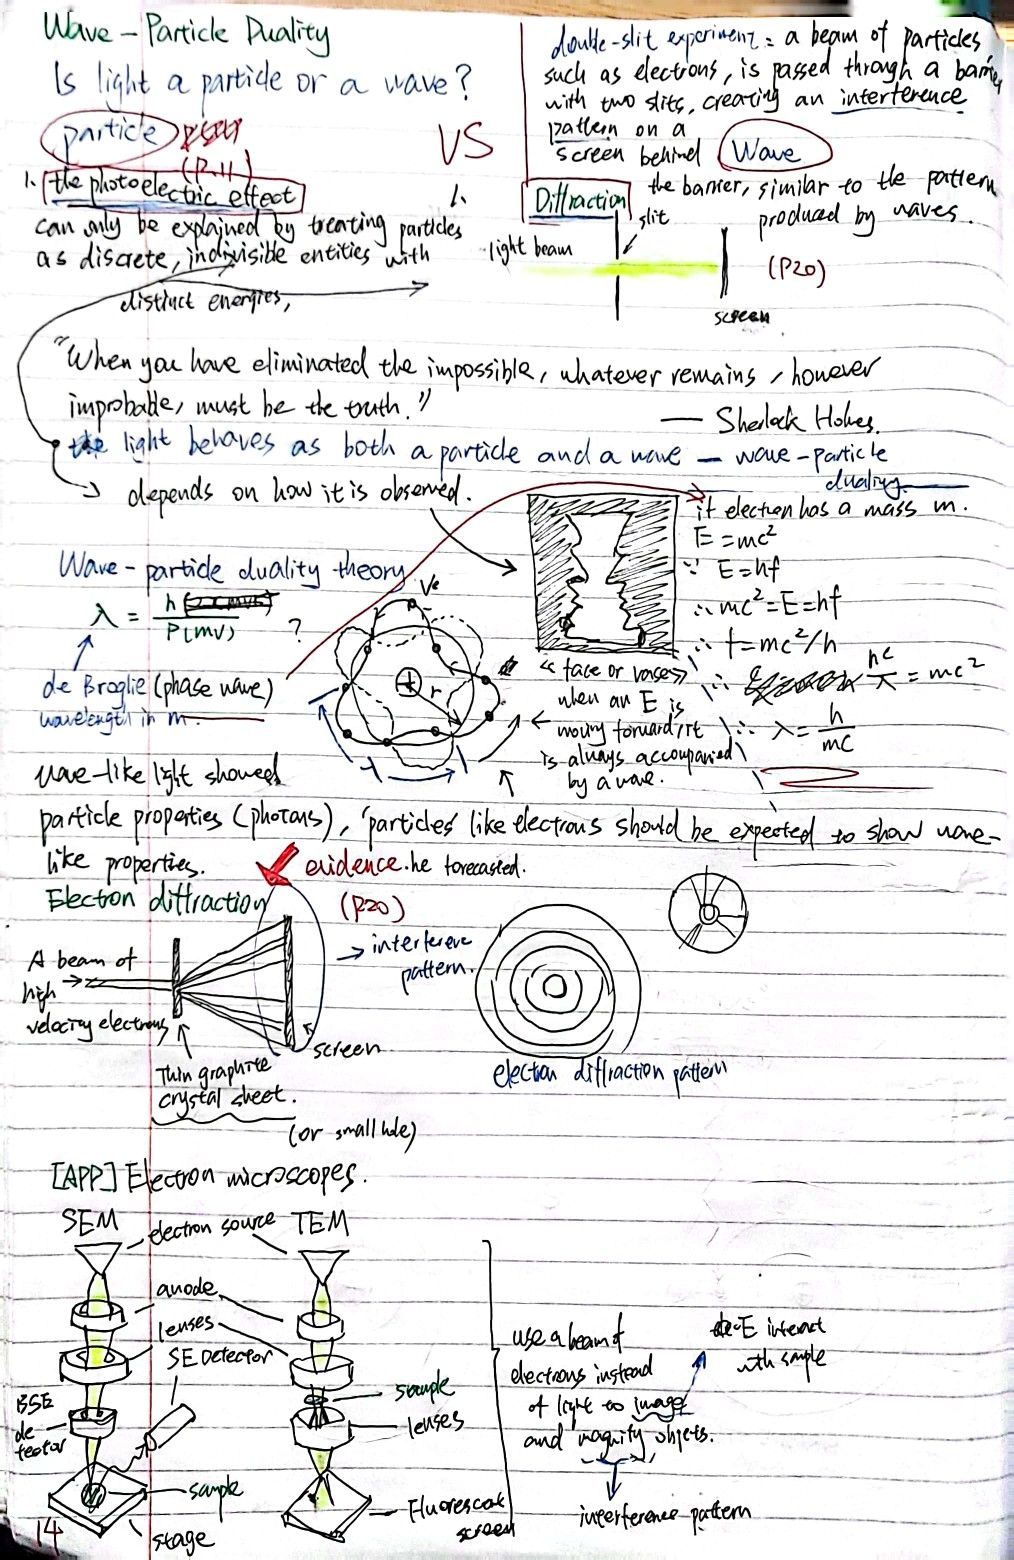 Wave-Particle Duality
Is light a particle or a wave?
particle
(P.11)
VS
1. the photoelectric effect
can only be explained by treating particles
as discrete, indivisible entities with
distinct energies,
double-slit experiment: a beam of particles,
such as electrons, is passed through a barrier
with two slits, creating an interference
pattern on a
screen behind
Wave
the barrier, similar to the pattern
produced by waves.
1.
Diffraction
slit
light beam
(P20)
screen
"When you have eliminated the impossible, whatever remains, however
improbable, must be the truth."
— Sherlock Holmes.
the light behaves as both a particle and a wave — wave-particle
duality
depends on how it is observed.
if electron has a mass m.
E=mc²
∵ E=hf
∴ mc²=E=hf
∴ f=mc²/h
∴ hc/λ = mc²
∴ λ = h/mc
Wave-particle duality theory
λ = h/P(mv)
?
de Broglie (phase wave)
wavelength in m
Ve
r
λ
"face or vases"
when an E is
moving forward, it
is always accompanied
by a wave.
wave-like light showed
particle properties (photons), 'particles' like electrons should be expected to show wave-
like properties.
evidence. he forecasted.
Electron diffraction
(P20)
A beam of
high
velocity electrons
→ interference
pattern.
screen
Thin graphite
crystal sheet.
(or small hole)
electron diffraction pattern
[APP] Electron microscopes.
SEM
electron source
TEM
anode
lenses
SE Detector
BSE
de
tector
sample
lenses
sample
stage
Fluorescent
screen
use a beam of
electrons instead
of light to image
and magnify objects.
E interact
with sample
interference pattern
14